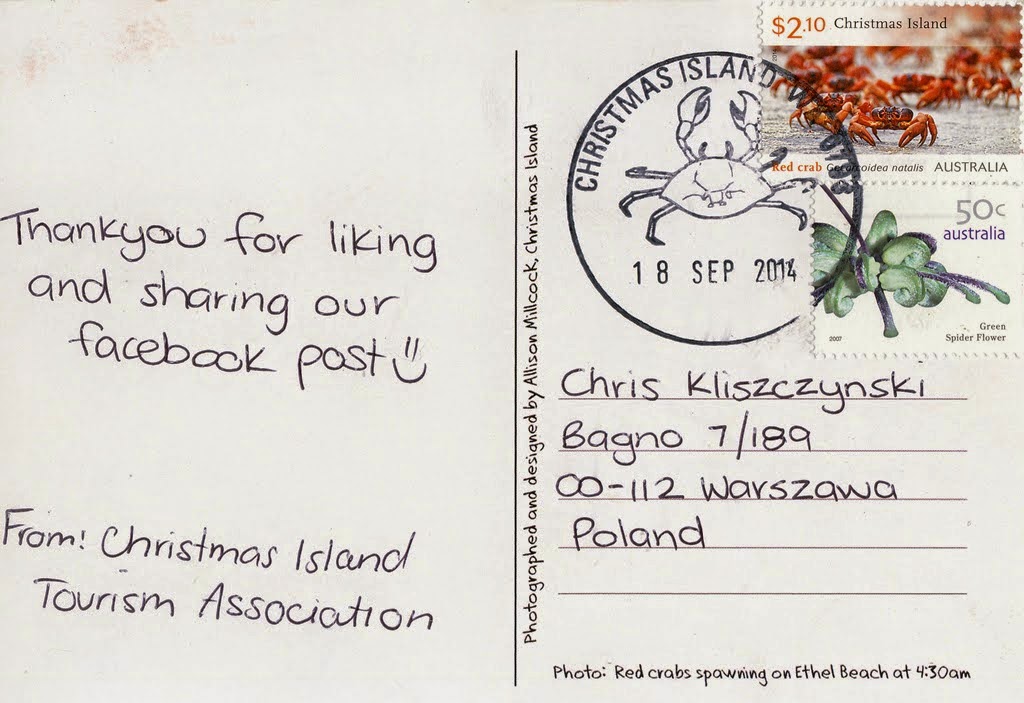 Thankyou for liking
and sharing our
facebook post
From: Christmas Island
Tourism Association
Photographed and designed by Allison Millcock, Christmas Island
CHRISTMAS ISLAND
18 SEP 2014
$2.10 Christmas Island
Red crab Gecarcoidea natalis AUSTRALIA
50c
australia
Green
Spider Flower
2007
Chris Kliszczynski
Bagno 7/189
00-112 Warszawa
Poland
Photo: Red crabs spawning on Ethel Beach at 4:30am